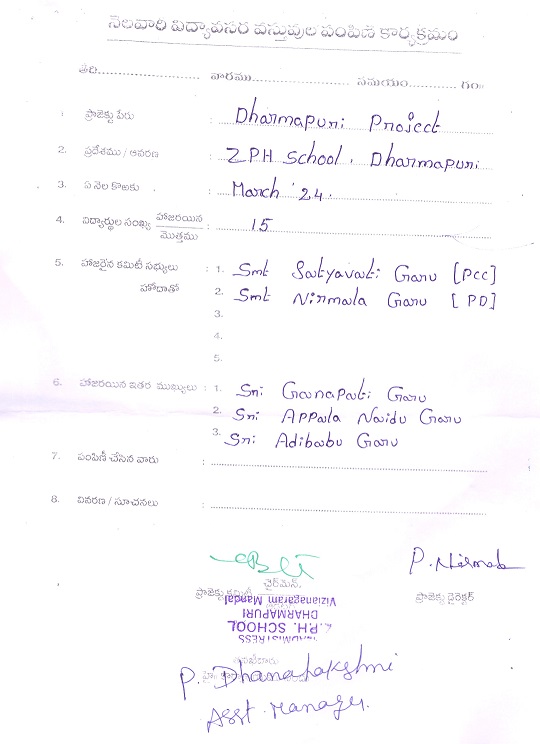 నెలవారి విద్యావసర వస్తువుల పంపిణి కార్యక్రమం
తేది............................ వారము............................ సమయం.................... గం॥
1. ప్రాజెక్టు పేరు : Dharmapuri Project
2. ప్రదేశము / ఆవరణ : ZPH School, Dharmapuri
3. ఏ నెల కొఱకు : March '24
4. విద్యార్థుల సంఖ్య హాజరయిన / మొత్తము : 15
5. హాజరైన కమిటీ సభ్యులు : 1. Smt Satyavati Garu [PCC]
హోదాతో 2. Smt Nirmala Garu [PD]
3.
4.
5.
6. హాజరయిన ఇతర ముఖ్యులు : 1. Sri Ganapati Garu
2. Sri Appala Naidu Garu
3. Sri Adibabu Garu
7. పంపిణీ చేసిన వారు :
8. వివరణ / సూచనలు :
P. Nirmala
ఛైర్‌మెన్,
ప్రాజెక్టు కమిటీ
ప్రాజెక్టు డైరెక్టర్
Vizianagaram Mandal
DHARMAPURI
Z.P.H. SCHOOL
HEADMISTRESS
P. Dhanalakshmi
Asst. Manager.